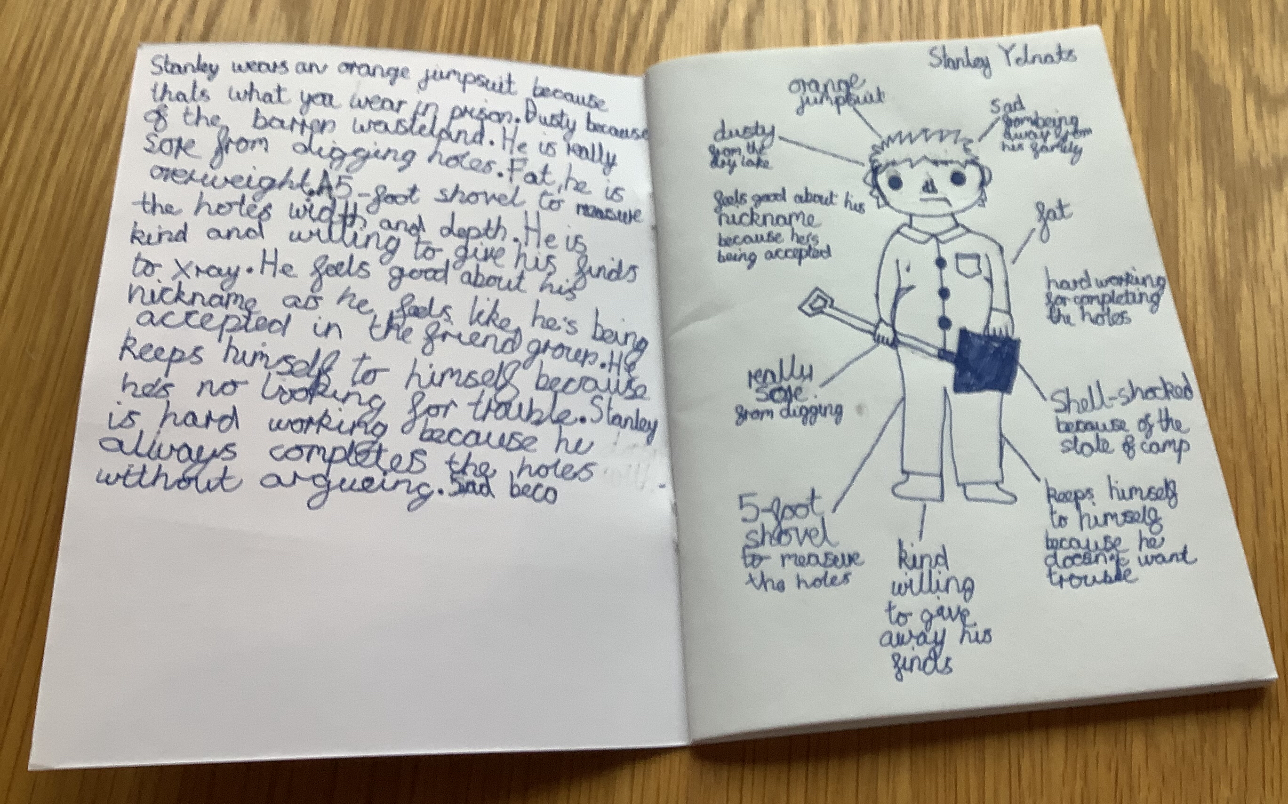 Stanley wears an orange jumpsuit because
thats what you wear in prison. Dusty because
of the barren wasteland. He is really
sore from digging holes. Fat, he is
overweight. A 5-foot shovel to measure
the holes width and depth. He is
kind and willing to give his finds
to xray. He feels good about his
nickname as he feels like he's being
accepted in the friend group. He
keeps himself to himself because
he's no looking for trouble. Stanley
is hard working because he
always completes the holes
without argueing. Sad beco
Stanley Yelnats
orange
jumpsuit
sad
from being
away from
his family
dusty
from the
dry lake
feels good about his
nickname
because he's
being accepted
fat
hard working
for completing
the holes
really
sore
from digging
Shell-shocked
because of the
state of camp
5-foot
shovel
to measure
the holes
kind
willing
to gave
away his
finds
keeps himself
to himself
because he
doesn't want
trouble